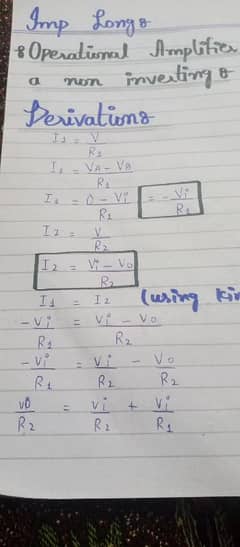 Imp Longs
Operational Amplifier
a non inverting
Derivations
I1 = V/R1
I1 = VA - VB/R1
I1 = 0 - Vi/R1 = - Vi/R1
I2 = V/R2
I2 = Vi - Vo/R2
I1 = I2 (using
-Vi/R1 = Vi - Vo/R2
-Vi/R1 = Vi/R2 - Vo/R2
Vo/R2 = Vi/R2 + Vi/R1